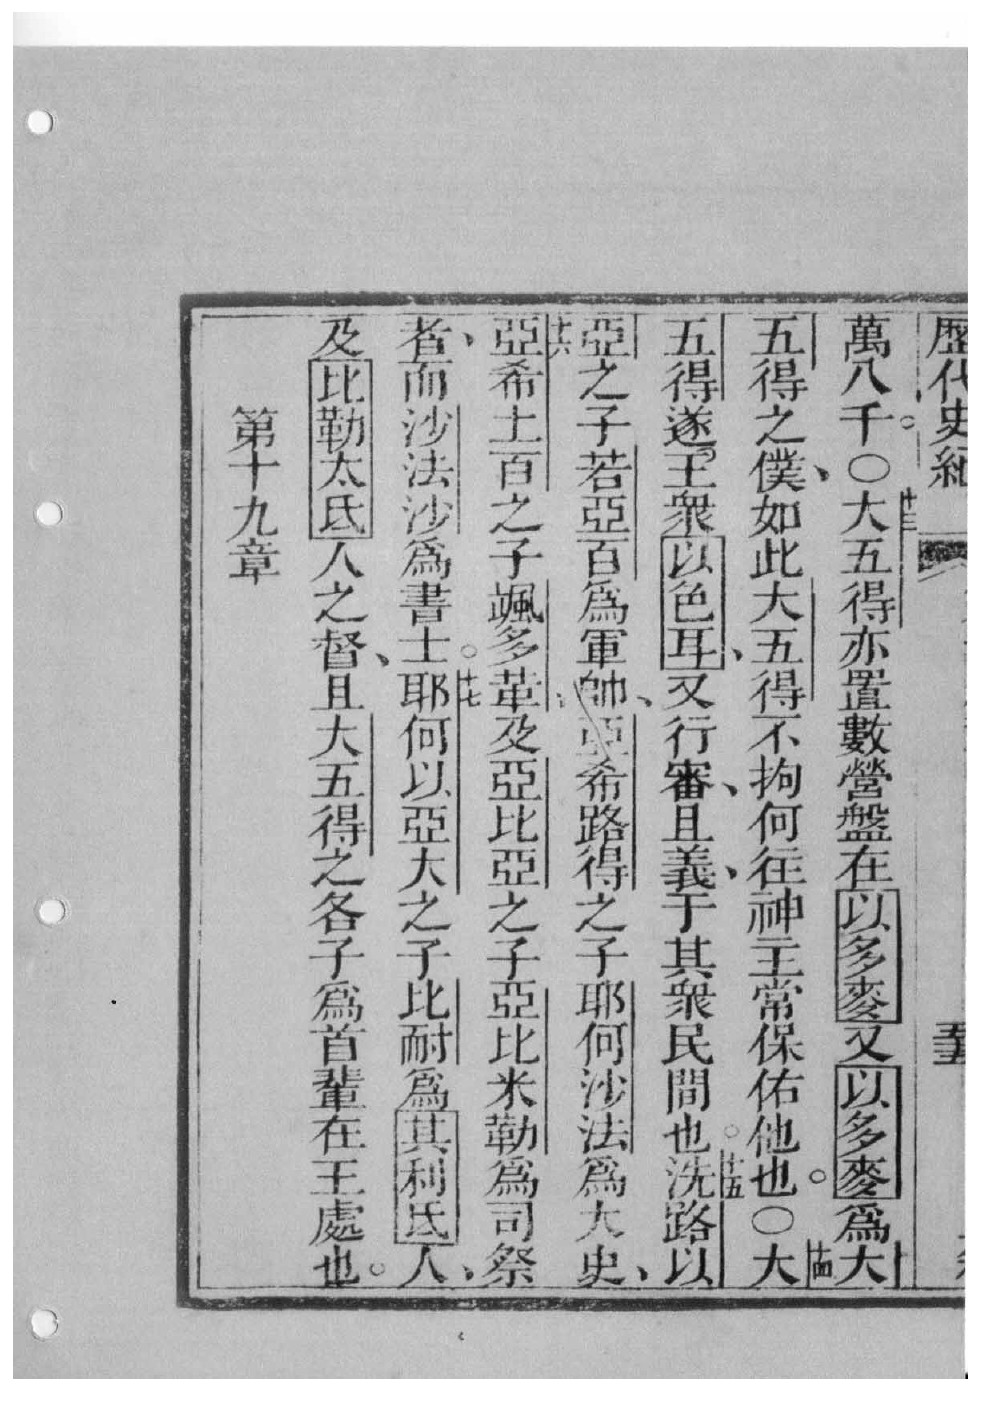 歷代史紀
萬八千。〇十三大五得亦置數營盤在以多麥又以多麥爲大
五得之僕、如此大五得不拘何往神主常保佑他也。〇十四大
五得遂王衆以色耳、又行審、且義、于其衆民間也。十五洗路以
亞之子若亞百爲軍帥、亞希路得之子耶何沙法爲大史、
十六亞希土百之子颯多革及亞比亞之子亞比米勒爲司祭
者、而沙法沙爲書士。十七耶何以亞大之子比耐爲其利氐人、
及比勒太氐人之督、且大五得之各子爲首輩在王處也。
第十九章